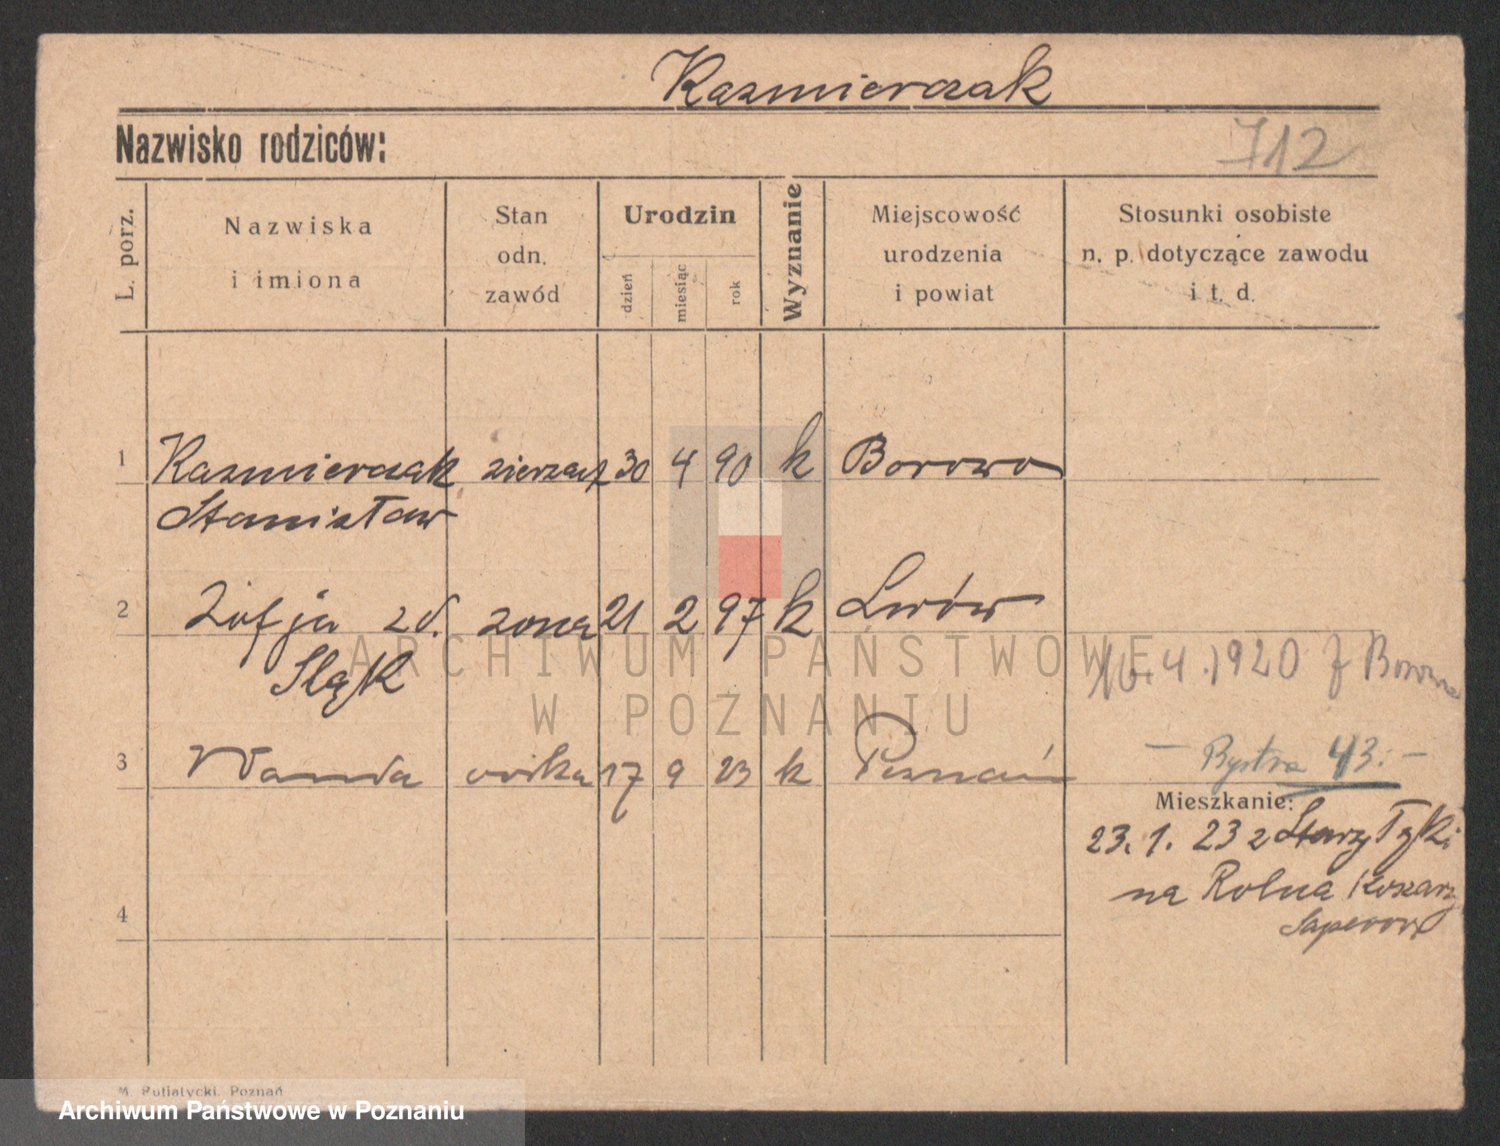 Kazmierczak
Nazwisko rodziców:
712
L. porz.
Nazwiska
i imiona
Stan
odn.
zawód
Urodzin
dzień
miesiąc
rok
Wyznanie
Miejscowość
urodzenia
i powiat
Stosunki osobiste
n. p. dotyczące zawodu
i t. d.
1 Kazmierczak 30 4 90 k Borowo
Stanisław
2 Zofja zd. żona 21 2 97 k Lwów
Śląsk
4. 1920 z Borowa
3 Wanda córka 17 9 23 k Poznań
- Bystra 43. -
Mieszkanie:
23. 1. 23 z Starzyłyki
na Rolna Koszary
Saperów
4
M. Putiatycki, Poznań
ARCHIWUM PAŃSTWOWE
W POZNANIU
Archiwum Państwowe w Poznaniu